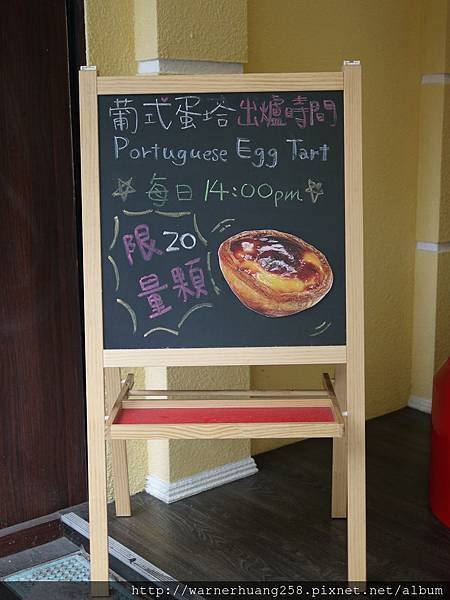 葡式蛋塔出爐時間
Portuguese Egg Tart
每日 14:00pm
限20
量顆
http://warnerhuang258.pixnet.net/album